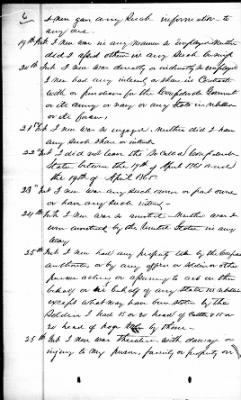 6
I never gave any such information to
any one.
19th Int I never was in any manner so employed neither
did I afford others in any such behalf
20th Int I never was directly or indirectly so employed
I never had any interest or share in Contract
with or purchase for the Confederate Government
or its army or navy or any State in rebellion
or its forces.
21st Int I never was so engaged. Neither did I have
any such share or interest
22nd Int I did not leave the so called Confederate
States between the 19th of April 1861 and
the 19th of April 1865
23rd Int I never was any such owner or part owner
or have any such interest
24th Int I never was so arrested Neither was I
ever arrested by the United States in any
way
25th Int I never had any property taken by the
authority or by any officer or soldier or other
person acting or assuming to act on the
behalf or behalf of any State in rebellion
except what may have been stolen by the
Soldiers I had 15 or 20 head of Cattle &
20 head of hogs by those
25th Int I never was threatened with damage or
injury to my person, family or property on